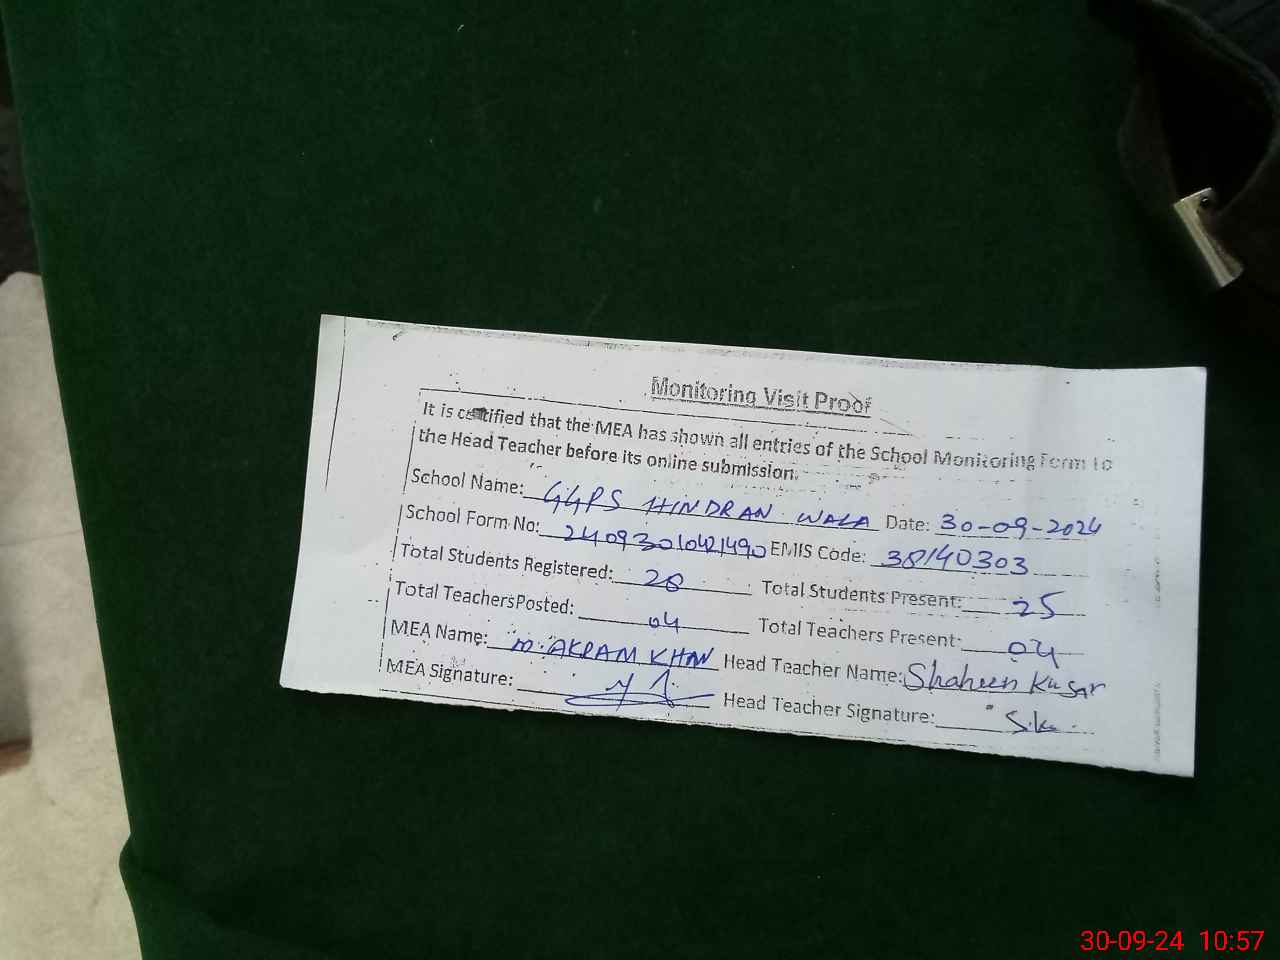 Monitoring Visit Proof
It is certified that the MEA has shown all entries of the School Monitoring Form to
the Head Teacher before its online submission.
School Name: GGPS HINDRAN WALA Date: 30-09-2024
School Form No: 2409301041490 EMIS Code: 38140303
Total Students Registered: 28 Total Students Present: 25
Total Teachers Posted: 04 Total Teachers Present: 04
MEA Name: M. AKRAM KHAN Head Teacher Name: Shaheen Kusar
MEA Signature: Head Teacher Signature: S.k
30-09-24 10:57